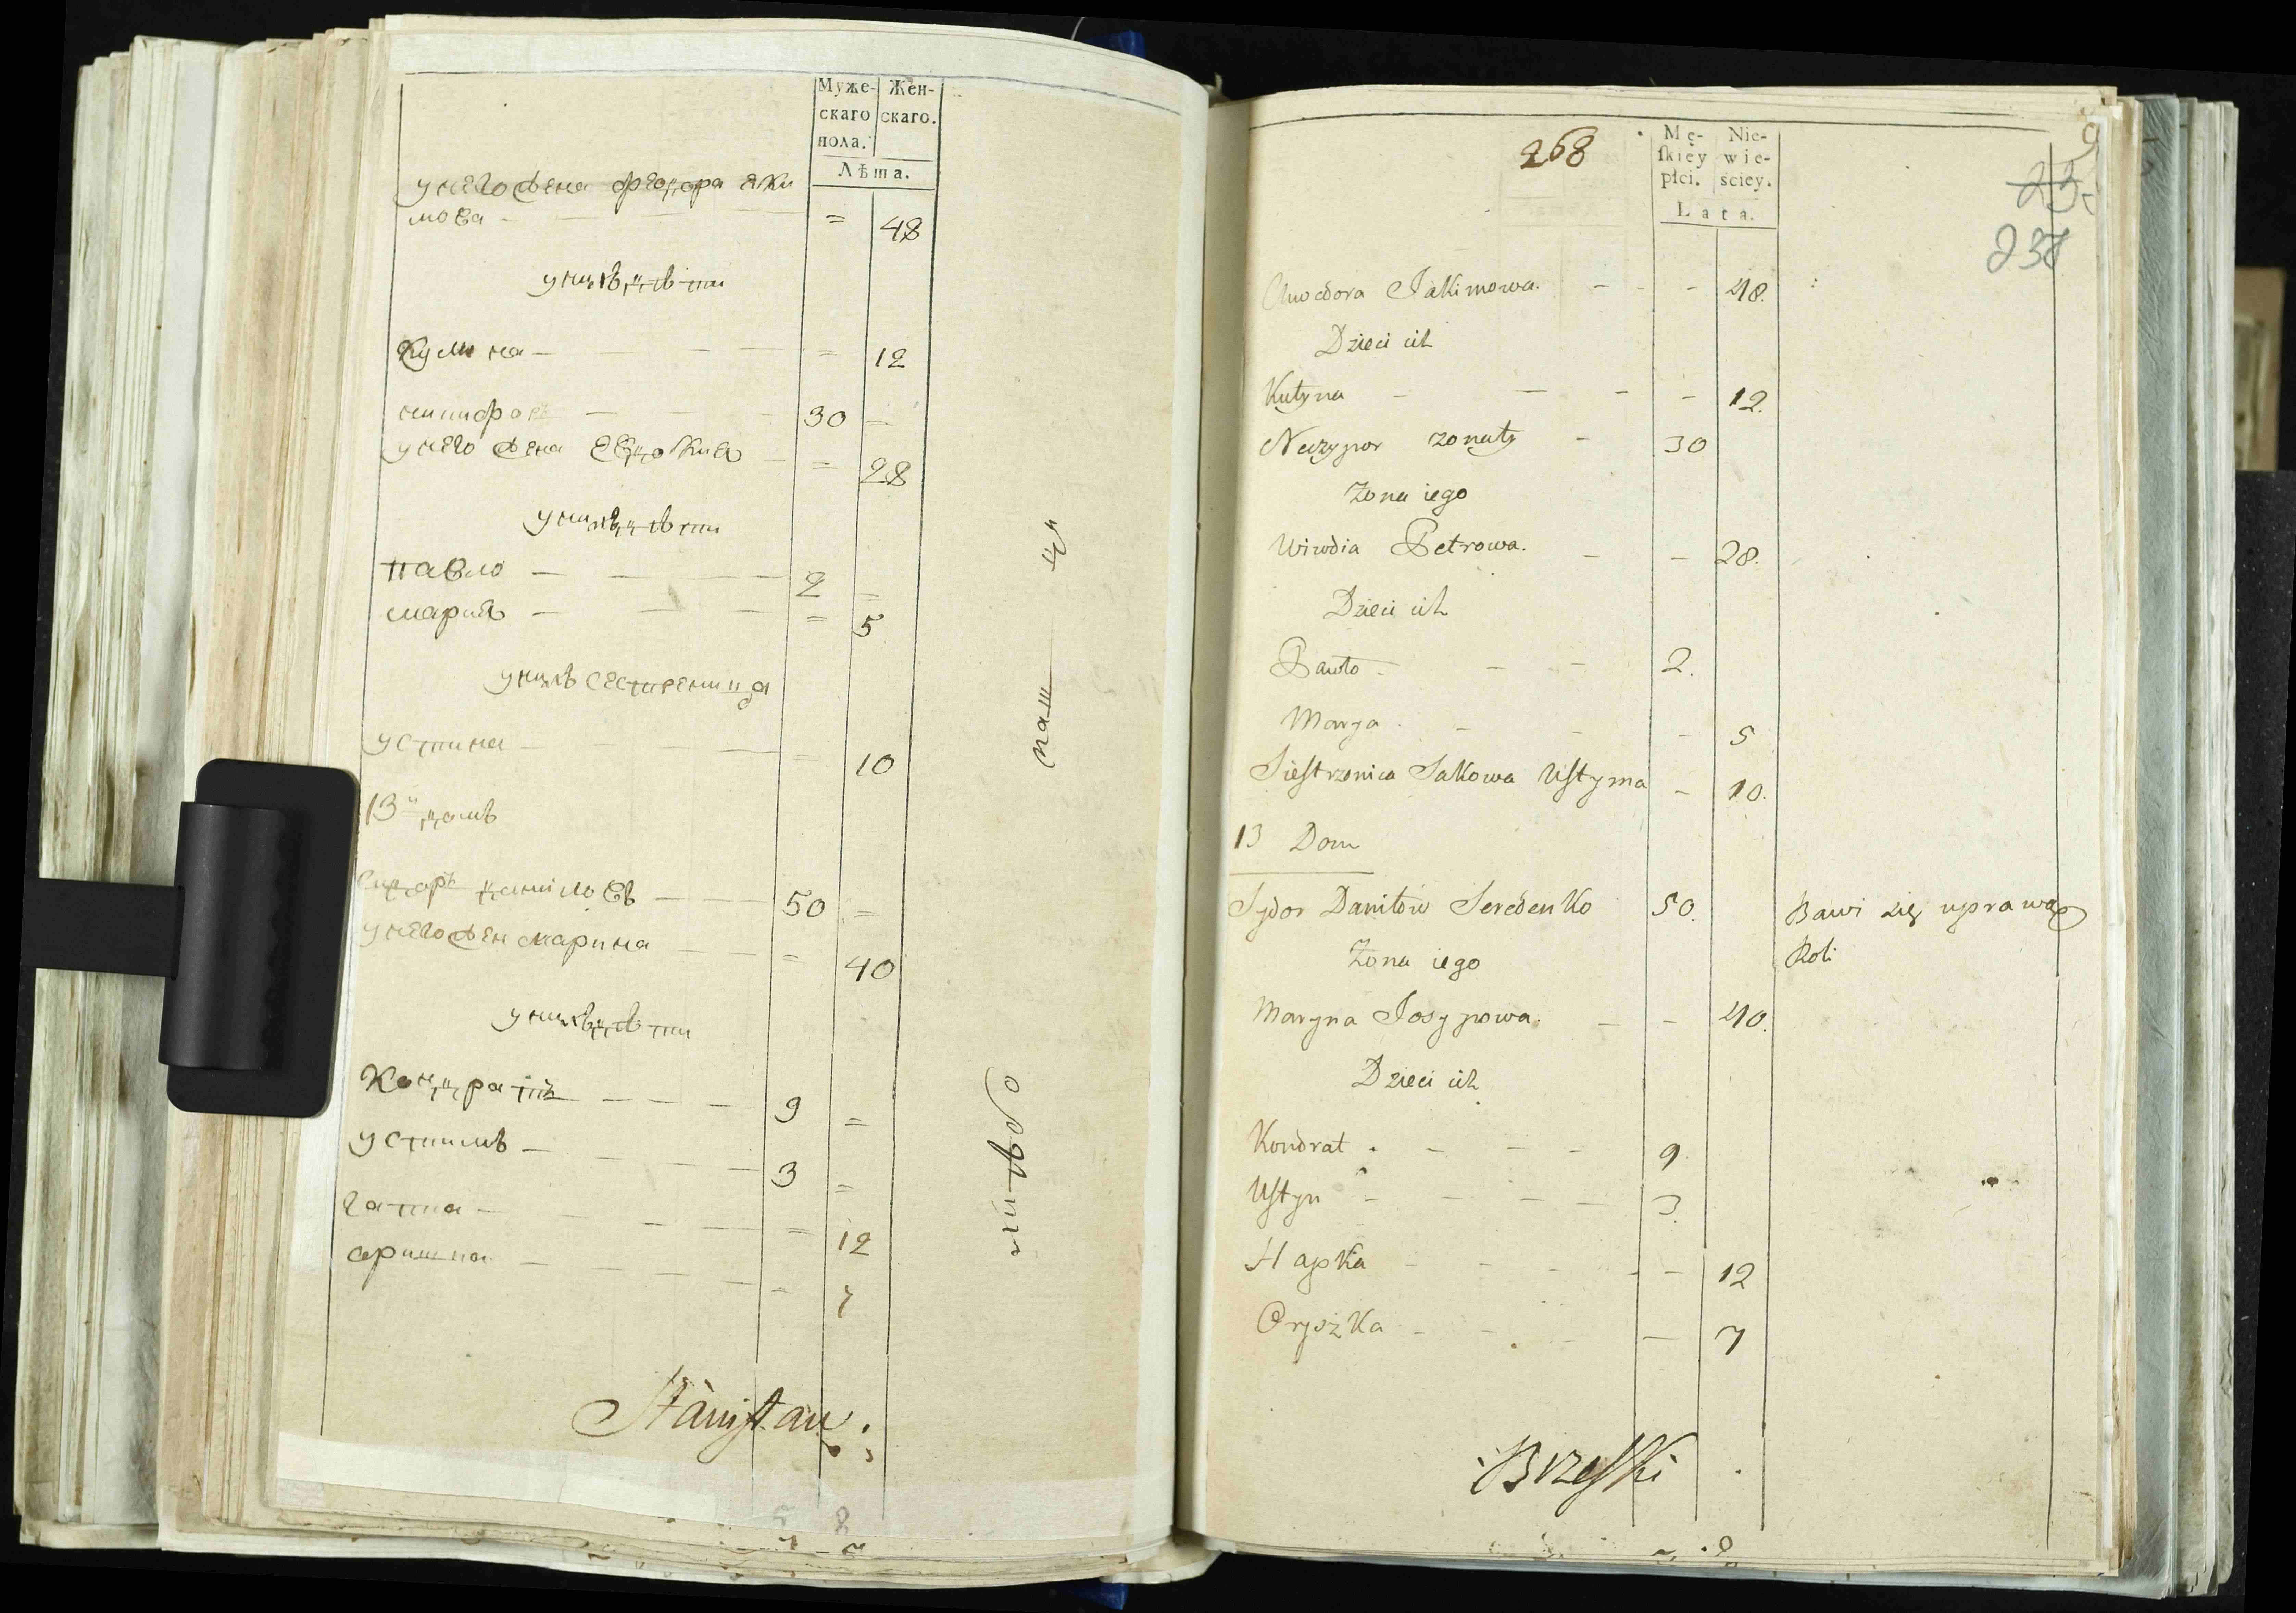 Муже-
скаго
пола.
Жен-
скаго.
Лѣта.
унего жена феодора яки
мова = 48
унихъ дѣти
Кулина = 12
ничифоръ 30
унего жена Евдокия = 28
унихъ дѣти
павло 2 =
мария = 5
унихъ сестреница
устина = 10
13й домъ
Сидоръ данiиловъ 50 =
унего жен марина = 40
унихъ дѣти
Кондратъ 9 =
устимъ 3 =
гапка = 12
аришка = 7
Stanisław
268
Mę-
skiey
płci.
Nie-
wie-
ściey.
Lata.
238
Chwedora Jakimowa. - - - 48.
Dzieci ich
Kulyna - - - - 12.
Neczypor żonaty - 30
Żona iego
Wiwdia Petrowa. - - 28.
Dzieci ich
Pawło - - - 2.
Marya - - - 5
Siestrzenica Jakowa Ustyma - 10.
13 Dom
Sydor Daniłow Seredenko 50. Bawi się uprawą
Roli
Żona iego
Maryna Josypowa. - - 40.
Dzieci ich
Kondrat - - - 9
Ustyn - - - - 3.
Hapka - - - - - 12
Oryszka - - - - 7
Brzeski